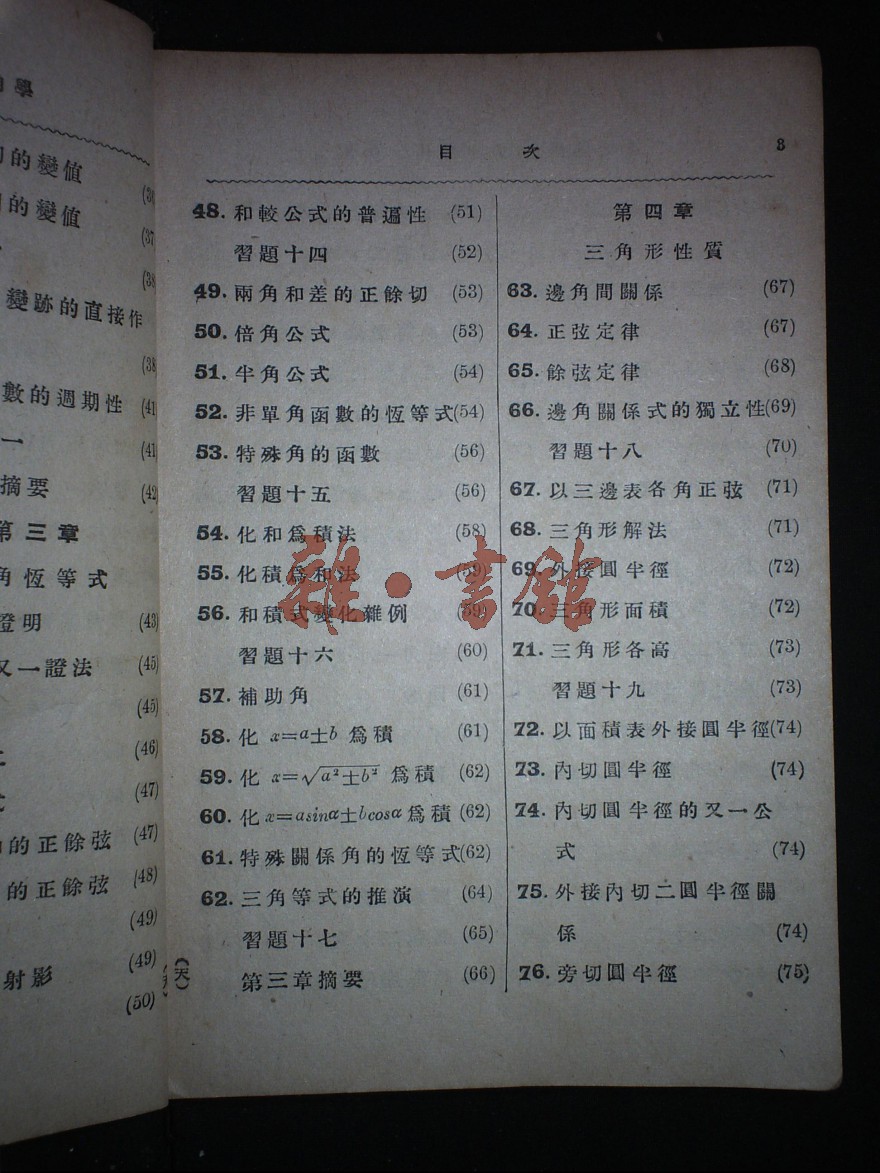 學
的變值
(36)
的變值
(37)
(38)
變跡的直接作
(38)
數的週期性 (41)
一
(41)
摘要
(42)
第三章
角恆等式
證明
(43)
又一證法
(45)
(45)
(46)
(47)
的正餘弦
(47)
的正餘弦
(48)
(49)
(49)
射影
(50)
目次
3
48. 和較公式的普遍性 (51)
習題十四 (52)
49. 兩角和差的正餘切 (53)
50. 倍角公式 (53)
51. 半角公式 (54)
52. 非單角函數的恆等式(54)
53. 特殊角的函數 (56)
習題十五 (56)
54. 化和爲積法 (58)
55. 化積爲和法 (59)
56. 和積式變化雜例 (59)
習題十六 (60)
57. 補助角 (61)
58. 化 x=a±b 爲積 (61)
59. 化 x=√a²±b² 爲積 (62)
60. 化x=asinα±bcosα爲積 (62)
61. 特殊關係角的恆等式(62)
62. 三角等式的推演 (64)
習題十七 (65)
第三章摘要 (66)
第四章
三角形性質
63. 邊角間關係 (67)
64. 正弦定律 (67)
65. 餘弦定律 (68)
66. 邊角關係式的獨立性(69)
習題十八 (70)
67. 以三邊表各角正弦 (71)
68. 三角形解法 (71)
69. 外接圓半徑 (72)
70. 三角形面積 (72)
71. 三角形各高 (73)
習題十九 (73)
72. 以面積表外接圓半徑(74)
73. 內切圓半徑 (74)
74. 內切圓半徑的又一公
式 (74)
75. 外接內切二圓半徑關
係 (74)
76. 旁切圓半徑 (75)
(天)
雜·書館